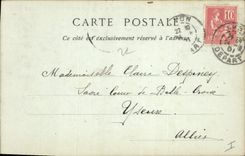 CARTE POSTALE
Ce côté est exclusivement réservé à l'adresse
10
DEPART
Mademoiselle Claire Despiney
Sacré Coeur de Belle-Croix
Yzeure
Allier